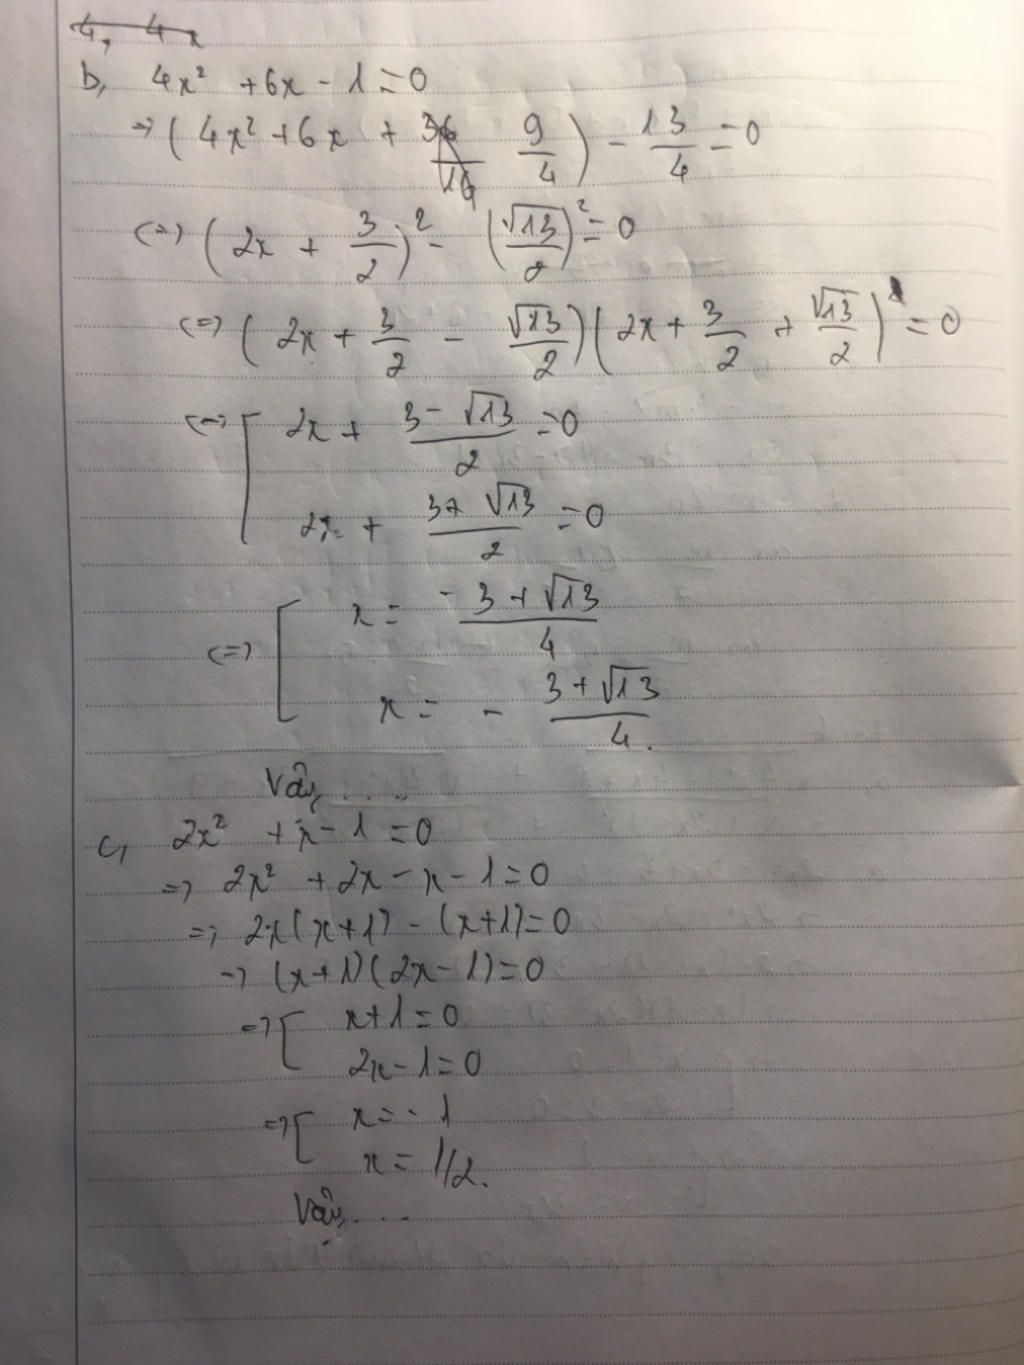 4, 4x
b, 4x² + 6x - 1 = 0
=> (4x² + 6x + 36/16 9/4) - 13/4 = 0
<=> (2x + 3/2)² - (√13/2)² = 0
<=> (2x + 3/2 - √13/2)(2x + 3/2 + √13/2) = 0
<=> [ 2x + (3 - √13)/2 = 0
2x + (3 + √13)/2 = 0
<=> [ x = (-3 + √13)/4
x = - (3 + √13)/4.
Vậy ....
c, 2x² + x - 1 = 0
=> 2x² + 2x - x - 1 = 0
=> 2x(x+1) - (x+1) = 0
=> (x+1)(2x-1) = 0
=> [ x+1 = 0
2x-1 = 0
=> [ x = -1
x = 1/2.
Vậy ....